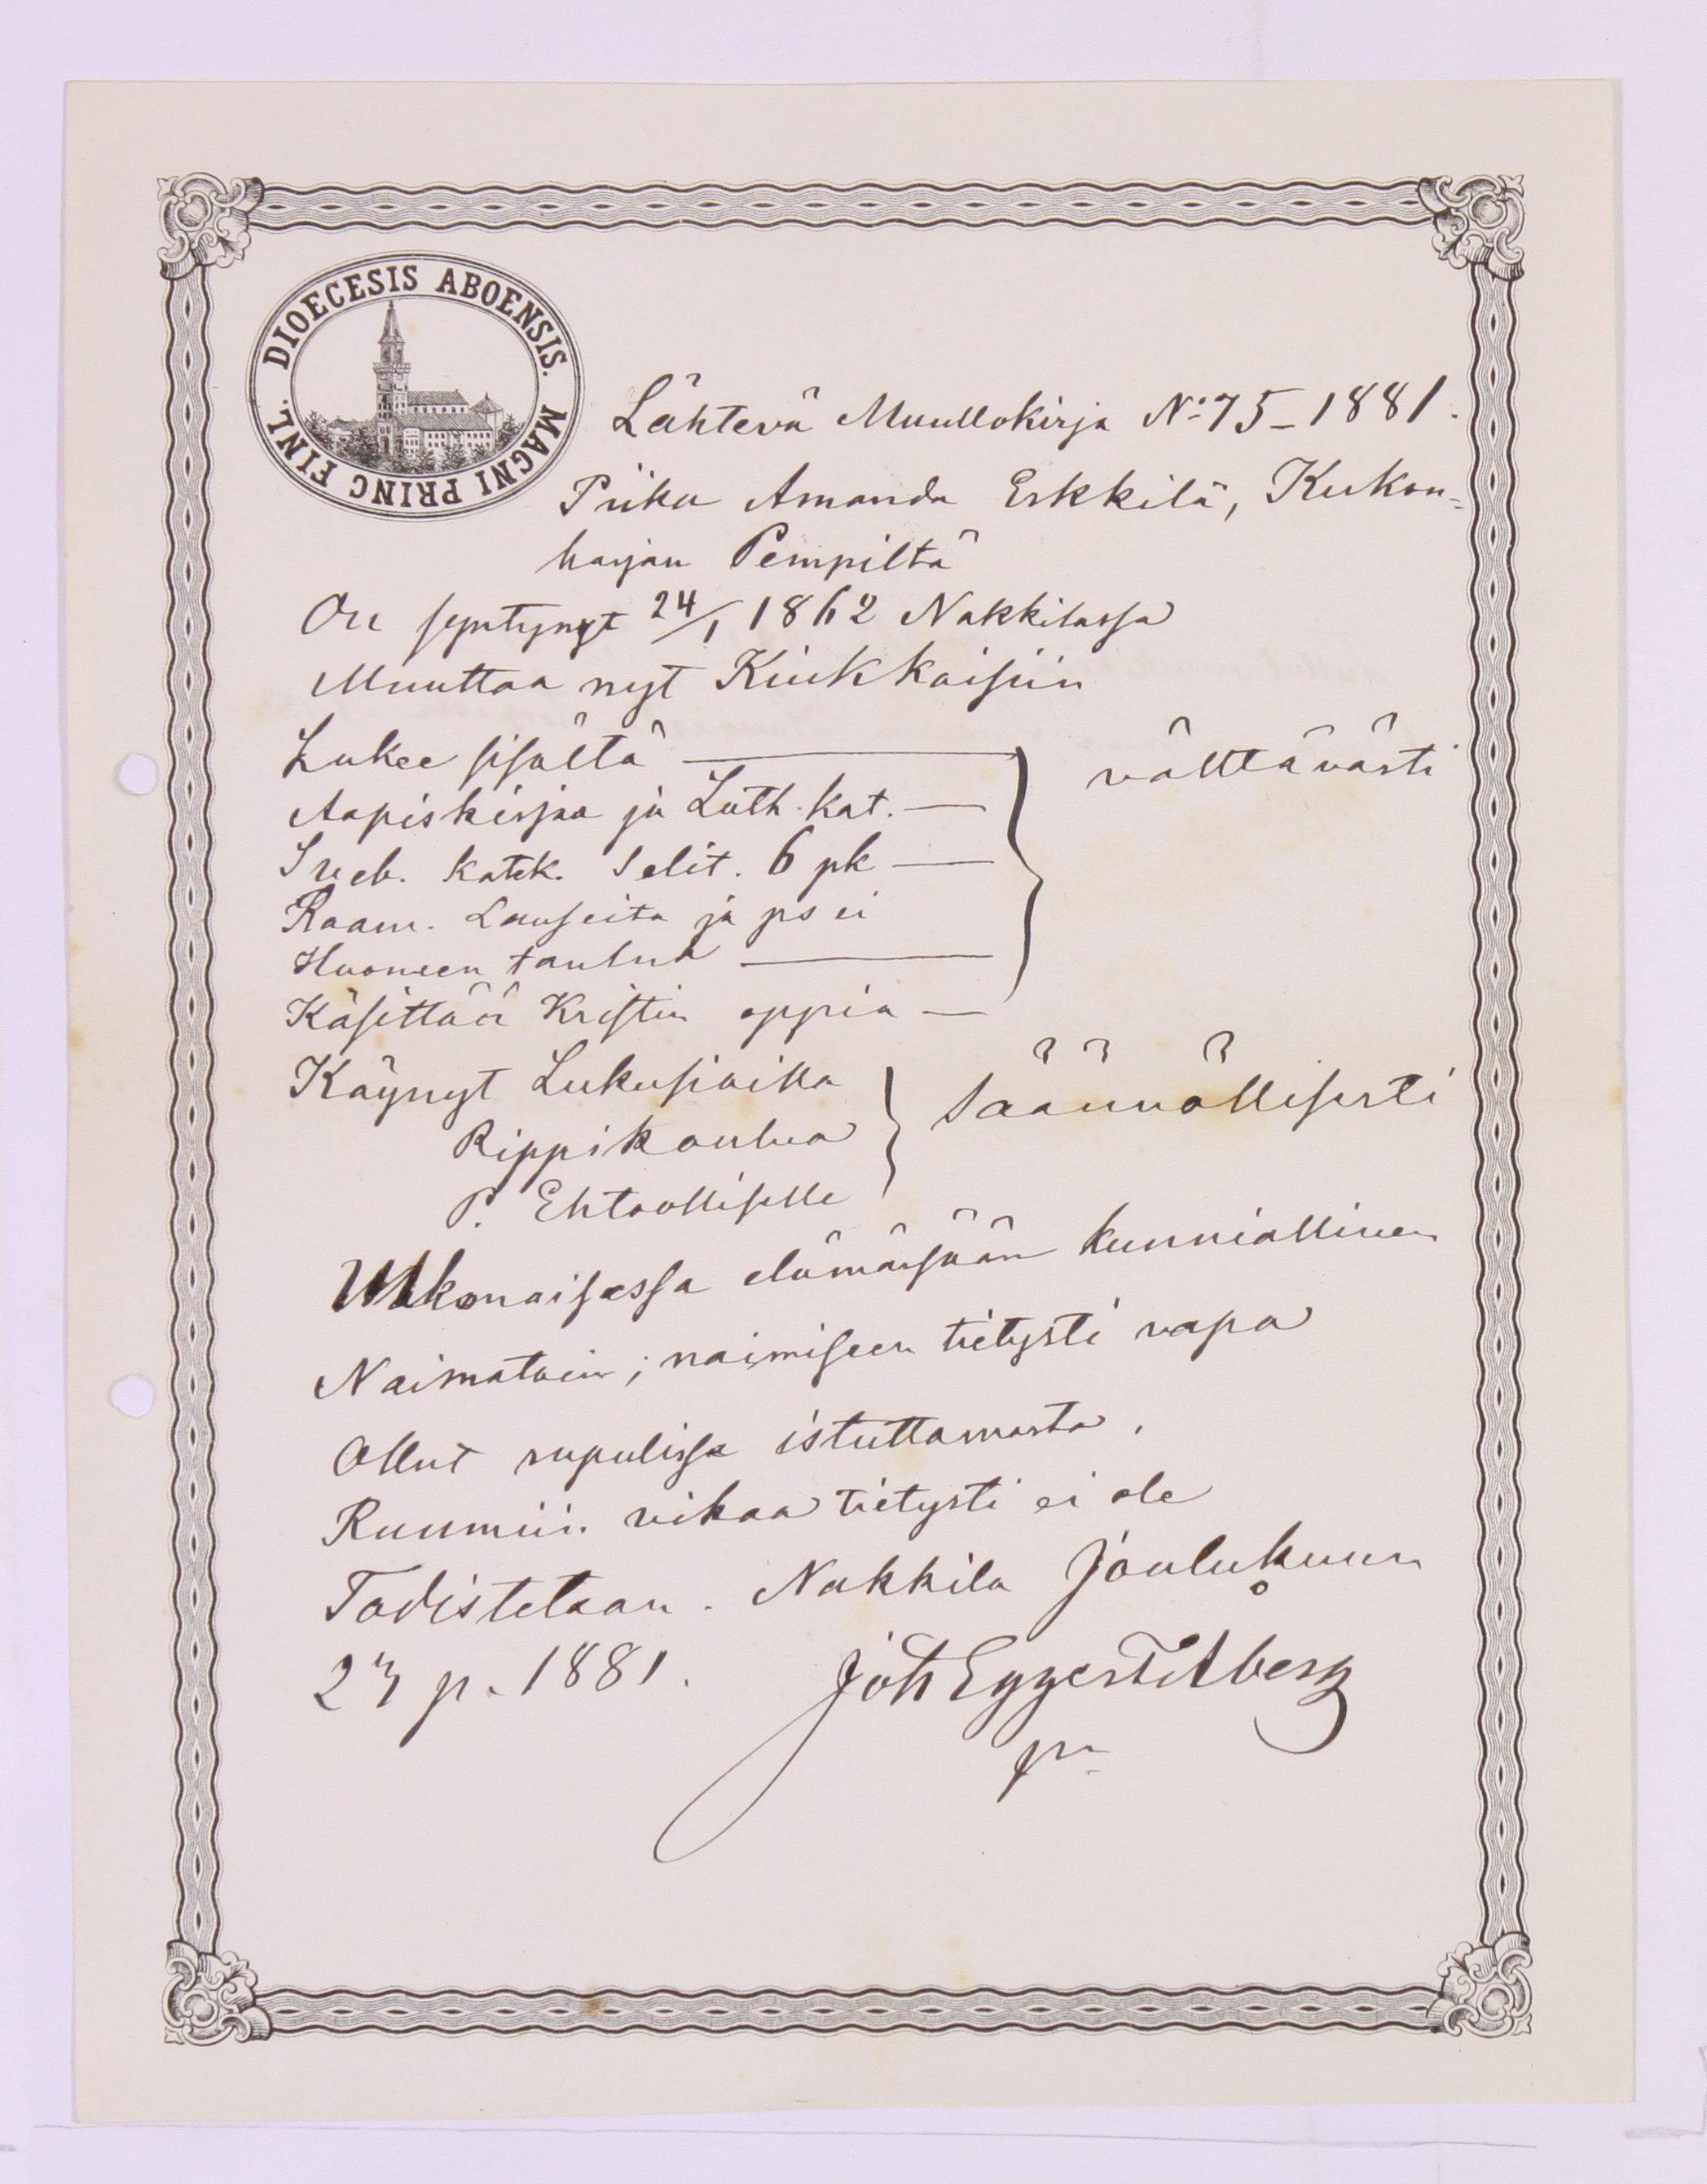 DIOECESIS ABOENSIS. MAGNI PRINC FINL.
Lähtevä Muuttokirja No 75–1881.
Piika Amanda Erkkilä, Kukon=
harjan Pempiltä
On syntynyt 24/1 1862 Nakkilassa
Muuttaa nyt Kiukkaisiin
Lukee sisältä — välttävästi
Aapiskirjaa ja Luth. kat. —
Sveb. katek. Selit. 6 pk —
Raam. Lauseita ja ps ei
Huoneen taulua —
Käsittää Kristin oppia —
Käynyt Lukusioilla
Rippikoulua säännöllisesti
P. Ehtoollisella
Ulkonaisessa elämässään kunniallinen
Naimatoin; naimiseen tietysti vapa
Ollut rupulissa istuttamasta.
Ruumiin vikaa tietysti ei ole
Todistetaan. Nakkila Joulukuun
27 p. 1881. Joh Eggert Alberg